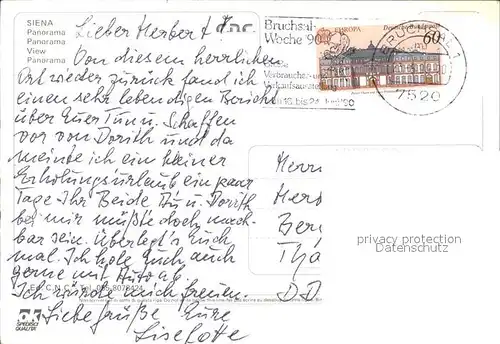 SIENA
Panorama
Panorama
View
Panorama
Lieber Herbert
Von diesem herrlichen
Ort wieder zurück fand ich
einen sehr lebendigen Bericht
über Euer Tun u. Schaffen
vor von Dorith und da
meinte ich ein kleiner
Erholungsurlaub ein paar
Tage Ihr Beide Du u. Dorith
bei mir müßte doch mach-
bar sein. Überlegt's Euch
mal. Ich hole Euch auch
gerne mit Auto ab
Ich würde mich freuen.
Liebe Grüße Eure
Liselotte
Bruchsal
Woche 90
Verbraucher- u.
Verkaufsausstellung
16. bis 24. Juni '90
EUROPA
Deutsche Bundespost
60
BRUCHSAL 1
7520
Herrn
Her
Ber
Thä
DD
privacy protection
Datenschutz
OK
SPEDISCI
QUALITA'